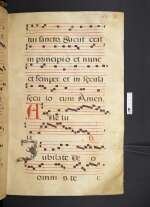 tui sancto Sicut erat
in principio et nunc
et semper et in secula
secu lo rum Amen
A lle lu
Iubilate De o
omnis te